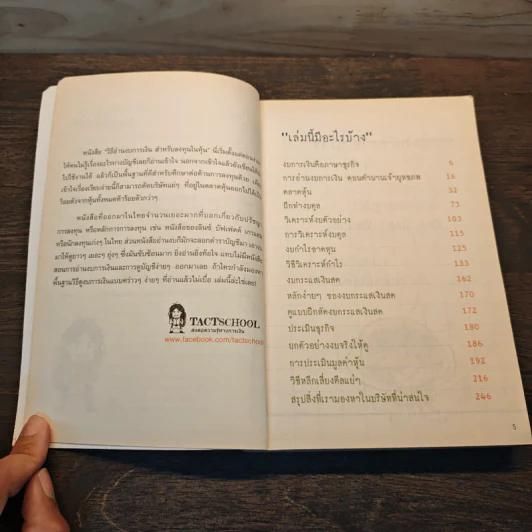 หนังสือ "วิธีอ่านงบการเงิน สำหรับลงทุนในหุ้น" นี้เริ่มตั้งแต่
ให้คนไม่รู้เรื่องอะไรทางบัญชีเลยก็อ่านเข้าใจ นอกจากเข้าใจแล้วยัง
ไปใช้งานได้ แล้วก็เป็นพื้นฐานที่ดีสำหรับศึกษาต่อด้านการลงทุนด้วย
เข้าใจเรื่องเรียบง่ายนี้ก็สามารถคัดบริษัทแย่ๆ ที่อยู่ในตลาดหุ้นออกไปได้
ร้อยตัวจากหุ้นทั้งหมดห้าร้อยตัวกว่าๆ
หนังสือที่ออกมาในไทยจำนวนเยอะมากที่บอกเกี่ยวกับปรัชญา
การลงทุน หรือหลักการการลงทุน เช่น หนังสือของลินซ์ บัฟเฟตต์
หรือนักลงทุนเก่งๆ ในไทย ส่วนหนังสืออ่านงบก็มักจะลอกตำราบัญชีมา
มาให้ดูยาวๆ เยอะๆ ยุ่งๆ ซึ่งมันซับซ้อนมาก ยิ่งอ่านยิ่งท้อใจ แทบไม่มีหนังสือ
สอนการอ่านงบการเงินและการดูบัญชีง่ายๆ ออกมาเลย ถ้าใครกำลังมองหา
พื้นฐานวิธีดูงบการเงินแบบคร่าวๆ ง่ายๆ ที่อ่านแล้วไม่เบื่อ เล่มนี้ล่ะใช่เลย!
TACTSCHOOL
www.facebook.com/tactschool
"เล่มนี้มีอะไรบ้าง"
งบการเงินคือภาษาธุรกิจ 6
การอ่านงบการเงิน ตอนตำนานเจ้ายุทธภพ 16
ตลาดหุ้น 52
ฝึกท่างบดุล 73
วิเคราะห์งบตัวอย่าง 103
การวิเคราะห์งบดุล 115
งบกำไรขาดทุน 125
วิธีวิเคราะห์กำไร 133
งบกระแสเงินสด 162
หลักง่ายๆ ของงบกระแสเงินสด 170
ดูแบบฝึกหัดงบกระแสเงินสด 172
ประเมินธุรกิจ 180
ยกตัวอย่างงบจริงให้ดู 186
การประเมินมูลค่าหุ้น 192
วิธีหลีกเลี่ยงดีลแย่ๆ 216
สรุปสิ่งที่เรามองหาในบริษัทที่น่าสนใจ 246
5